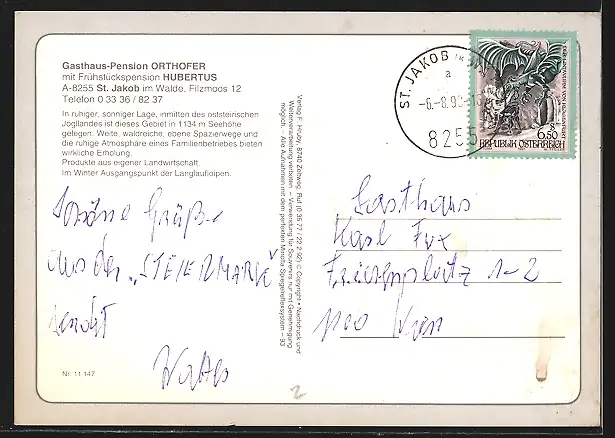 Gasthaus-Pension ORTHOFER
mit Frühstückspension HUBERTUS
A-8255 St. Jakob im Walde, Filzmoos 12
Telefon 0 33 36 / 82 37
In ruhiger, sonniger Lage, inmitten des oststeirischen
Jogllandes ist dieses Gebiet in 1134 m Seehöhe
gelegen. Weite, waldreiche, ebene Spazierwege und
die ruhige Atmosphäre eines Familienbetriebes bieten
wirkliche Erholung.
Produkte aus eigener Landwirtschaft.
Im Winter Ausgangspunkt der Langlaufloipen.
Schöne Grüße
aus der „STEIERMARK"
sendet
Nr. 11 147
Verlag F. Hruby, 8740 Zeltweg, Ruf (0 35 77 / 22 2 92) © Copyright • Nachdruck und
Weiterverarbeitung verboten – Verwendung für Souvenirs nur mit Genehmigung
möglich. – Alle Aufnahmen mit dem perfekten Minolta Spiegelreflexsystem – 93
ST. JAKOB
a
8255
6.50
REPUBLIK ÖSTERREICH
Gasthaus
Karl Fux
1-2
1100 Wien
2